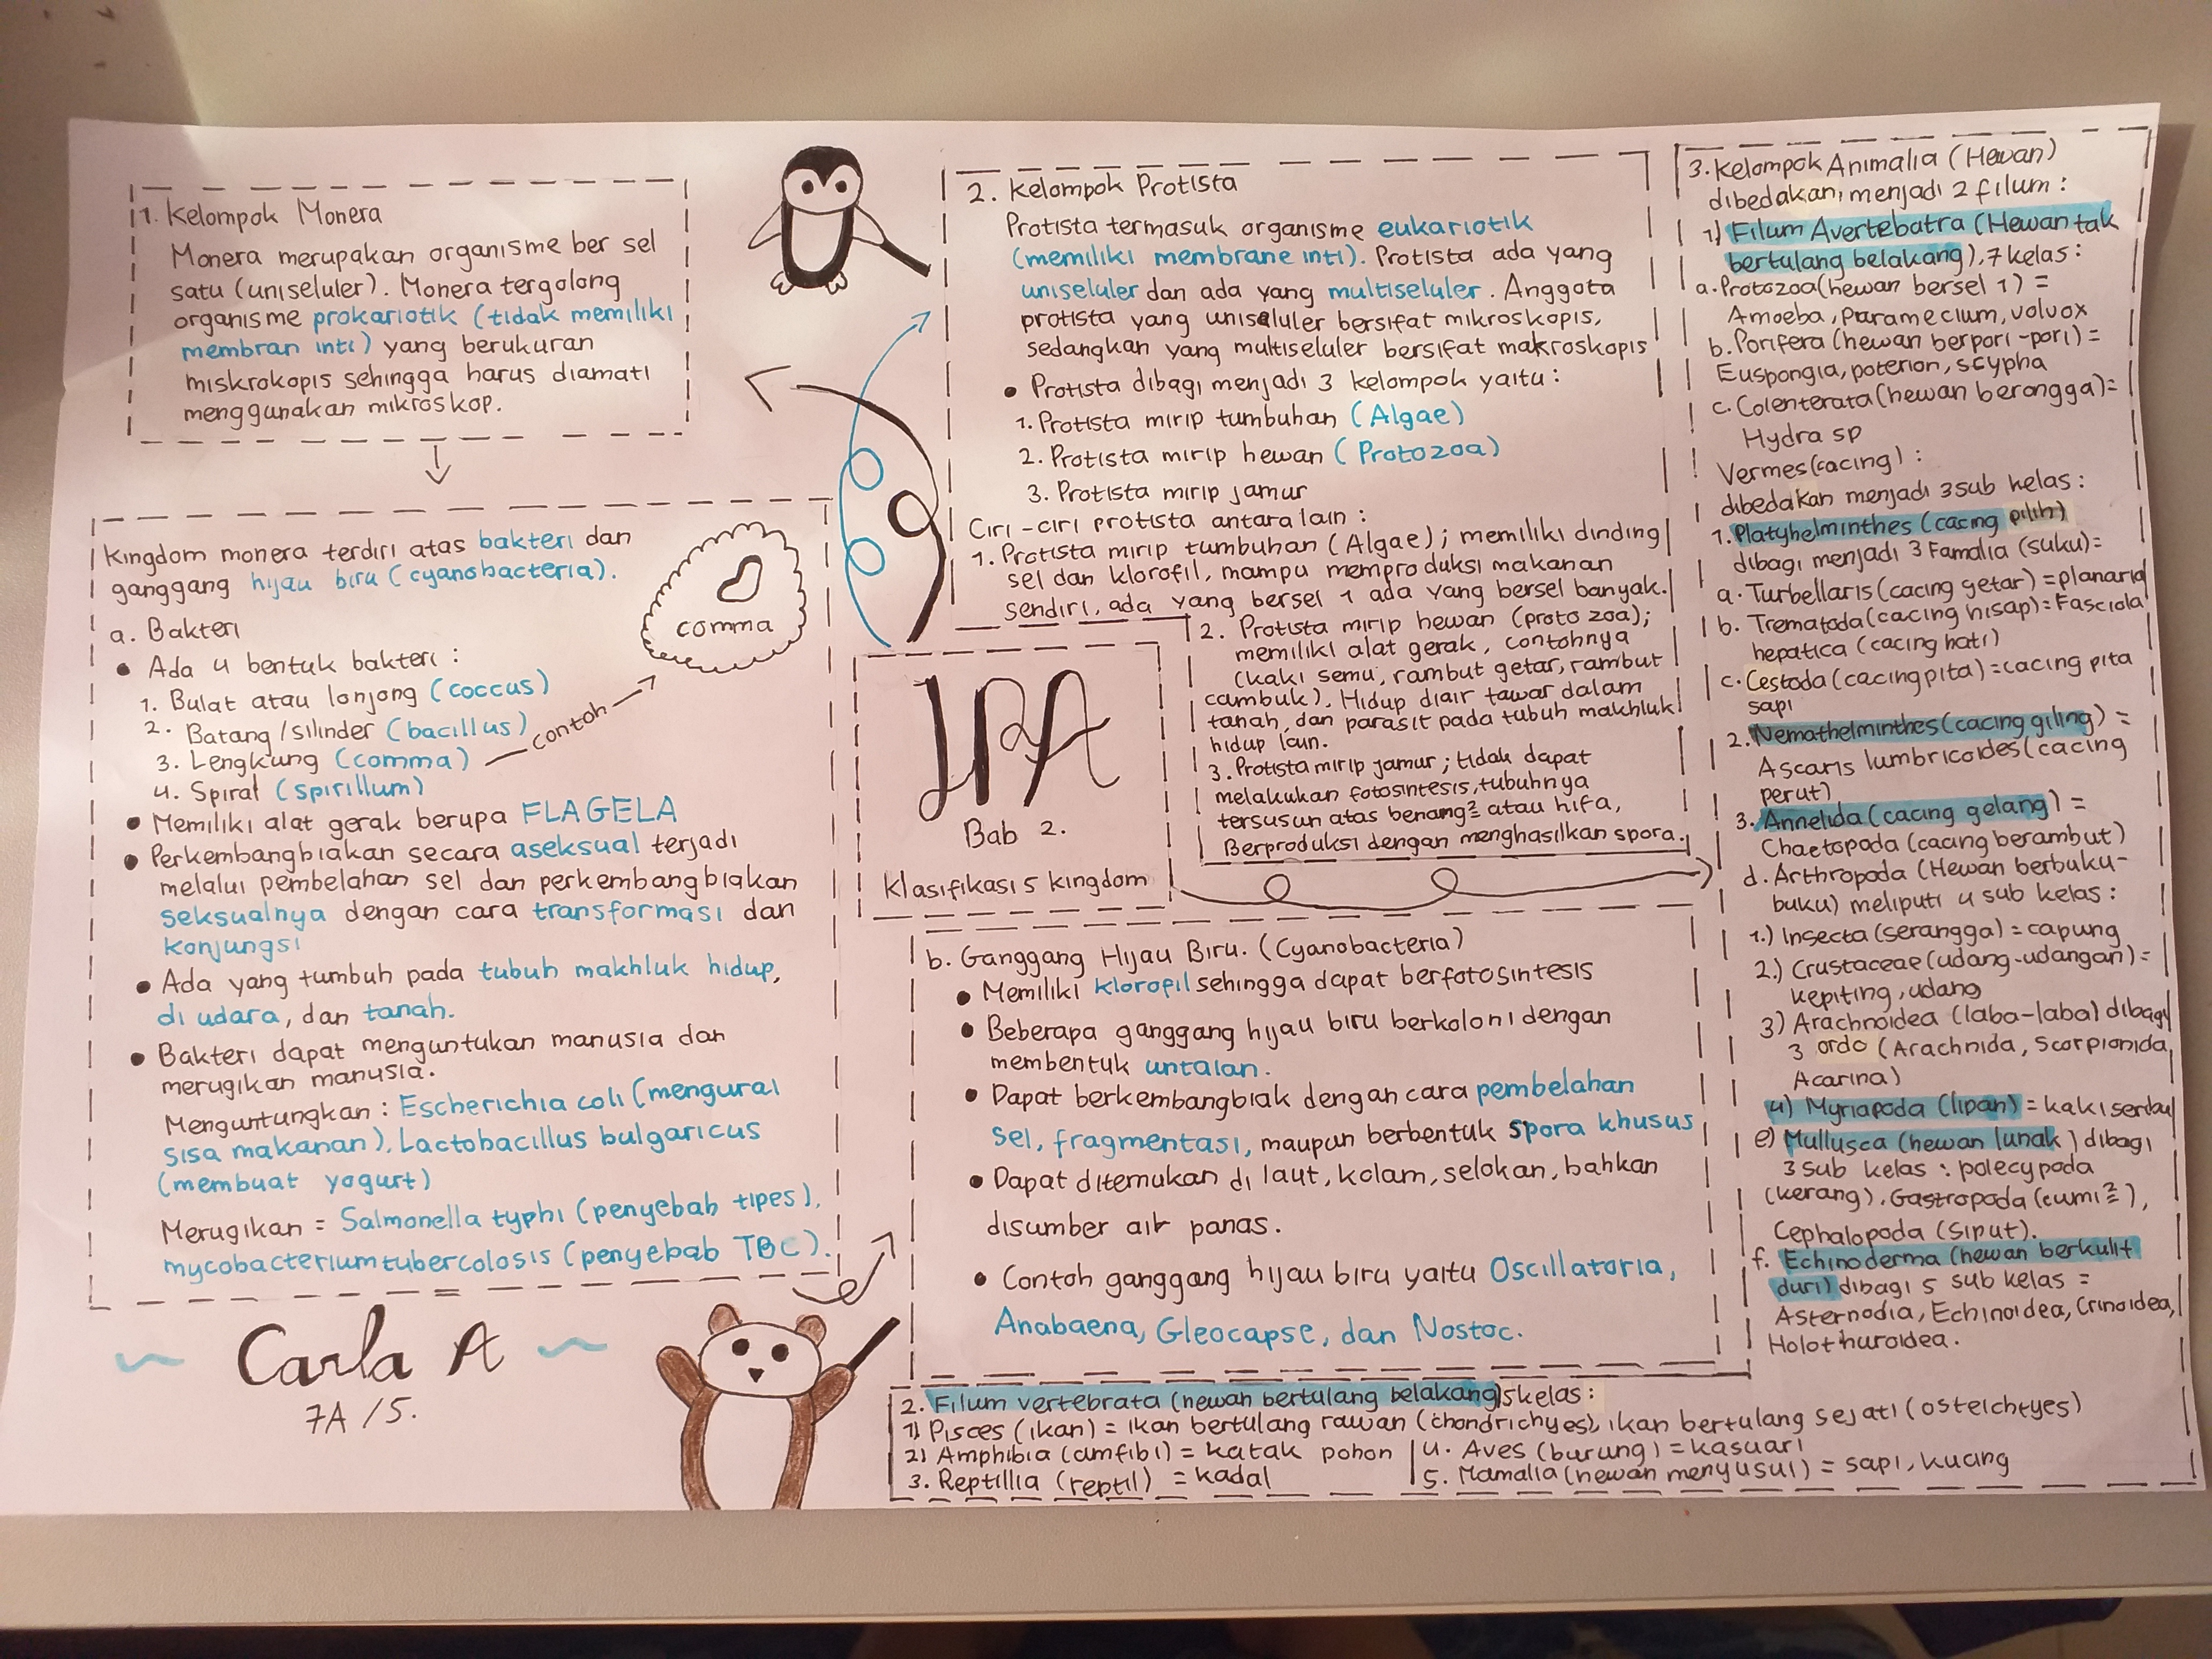 1. Kelompok Monera
Monera merupakan organisme ber sel
satu (uniseluler). Monera tergolong
organisme prokariotik (tidak memiliki
membran inti) yang berukuran
miskrokopis sehingga harus diamati
menggunakan mikroskop.
Kingdom monera terdiri atas bakteri dan
ganggang hijau biru (cyanobacteria).
a. Bakteri
• Ada 4 bentuk bakteri :
1. Bulat atau lonjong (coccus)
2. Batang/silinder (bacillus)
3. Lengkung (comma)
contoh
comma
4. Spiral (spirillum)
• Memiliki alat gerak berupa FLAGELA
• Perkembangbiakan secara aseksual terjadi
melalui pembelahan sel dan perkembangbiakan
seksualnya dengan cara transformasi dan
konjungsi
• Ada yang tumbuh pada tubuh makhluk hidup,
di udara, dan tanah.
• Bakteri dapat menguntukan manusia dan
merugikan manusia.
Menguntungkan : Escherichia coli (mengurai
sisa makanan), Lactobacillus bulgaricus
(membuat yogurt)
Merugikan = Salmonella typhi (penyebab tipes),
mycobacterium tubercolosis (penyebab TBC).
Carla A
7A/5.
2. Kelompok Protista
Protista termasuk organisme eukariotik
(memiliki membrane inti). Protista ada yang
uniseluler dan ada yang multiseluler. Anggota
protista yang uniseluler bersifat mikroskopis,
sedangkan yang multiseluler bersifat makroskopis
• Protista dibagi menjadi 3 kelompok yaitu :
1. Protista mirip tumbuhan (Algae)
2. Protista mirip hewan (Protozoa)
3. Protista mirip jamur
Ciri-ciri protista antara lain :
1. Protista mirip tumbuhan (Algae); memiliki dinding
sel dan klorofil, mampu memproduksi makanan
sendiri, ada yang bersel 1 ada yang bersel banyak.
2. Protista mirip hewan (proto zoa);
memiliki alat gerak, contohnya
(kaki semu, rambut getar, rambut
cambuk). Hidup diair tawar dalam
tanah, dan parasit pada tubuh makhluk
hidup lain.
3. Protista mirip jamur; tidak dapat
melakukan fotosintesis, tubuhnya
tersusun atas benang² atau hifa,
Berproduksi dengan menghasilkan spora.
IPA
Bab 2.
Klasifikasi 5 kingdom
b. Ganggang Hijau Biru. (Cyanobacteria)
• Memiliki klorofil sehingga dapat berfotosintesis
• Beberapa ganggang hijau biru berkoloni dengan
membentuk untaian.
• Dapat berkembangbiak dengan cara pembelahan
sel, fragmentasi, maupun berbentuk spora khusus
• Dapat ditemukan di laut, kolam, selokan, bahkan
disumber air panas.
• Contoh ganggang hijau biru yaitu Oscillatoria,
Anabaena, Gleocapse, dan Nostoc.
3. Kelompok Animalia (Hewan)
dibedakan menjadi 2 filum :
1) Filum Avertebatra (Hewan tak
bertulang belakang), 7 kelas :
a. Protozoa (hewan bersel 1) =
Amoeba, Paramecium, volvox
b. Porifera (hewan berpori-pori) =
Euspongia, poterion, scypha
c. Colenterata (hewan berongga) =
Hydra sp
Vermes (cacing) :
dibedakan menjadi 3 sub kelas :
1. Platyhelminthes (cacing pilih)
dibagi menjadi 3 Famalia (suku) =
a. Turbellaris (cacing getar) = planaria
b. Trematoda (cacing hisap) = Fasciola
hepatica (cacing hati)
c. Cestoda (cacing pita) = cacing pita
sapi
2. Nemathelminthes (cacing giling) =
Ascaris lumbricoides (cacing
perut)
3. Annelida (cacing gelang) =
Chaetopoda (cacing berambut)
d. Arthropoda (Hewan berbuku-
buku) meliputi 4 sub kelas :
1.) Insecta (serangga) = capung
2.) Crustaceae (udang-udangan) =
kepiting, udang
3) Arachnoidea (laba-laba) dibagi
3 ordo (Arachnida, Scorpionida,
Acarina)
4) Myriapoda (lipan) = kaki seribu
e) Mullusca (hewan lunak) dibagi
3 sub kelas : polecypoda
(kerang), Gastropoda (cumi²),
Cephalopoda (siput).
f. Echinoderma (hewan berkulit
duri) dibagi 5 sub kelas =
Asternodia, Echinoidea, Crinoidea,
Holothuroidea.
2. Filum vertebrata (hewan bertulang belakang) 5 kelas :
1) Pisces (ikan) = ikan bertulang rawan (chondrichyes), ikan bertulang sejati (osteichtyes)
2) Amphibia (amfibi) = katak pohon
3. Reptillia (reptil) = kadal
4. Aves (burung) = kasuari
5. Mamalia (hewan menyusui) = sapi, kucing